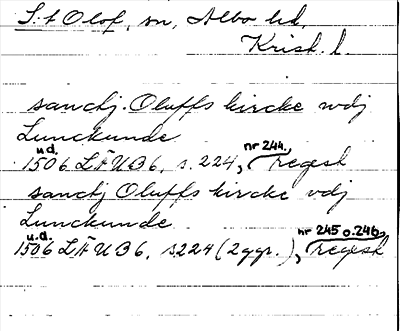 S:t Olof, sn, Albo hd,
Krist. l.
sanctj. Oluffs kircke vdj
Lunckunde
u.d. nr 244,
1506 LÄUB 6, s. 224, regest
sanctj Oluffs kircke vdj
Lunckunde
u.d. nr 245 o. 246,
1506 LÄUB 6, s 224 (2 ggr.), regest